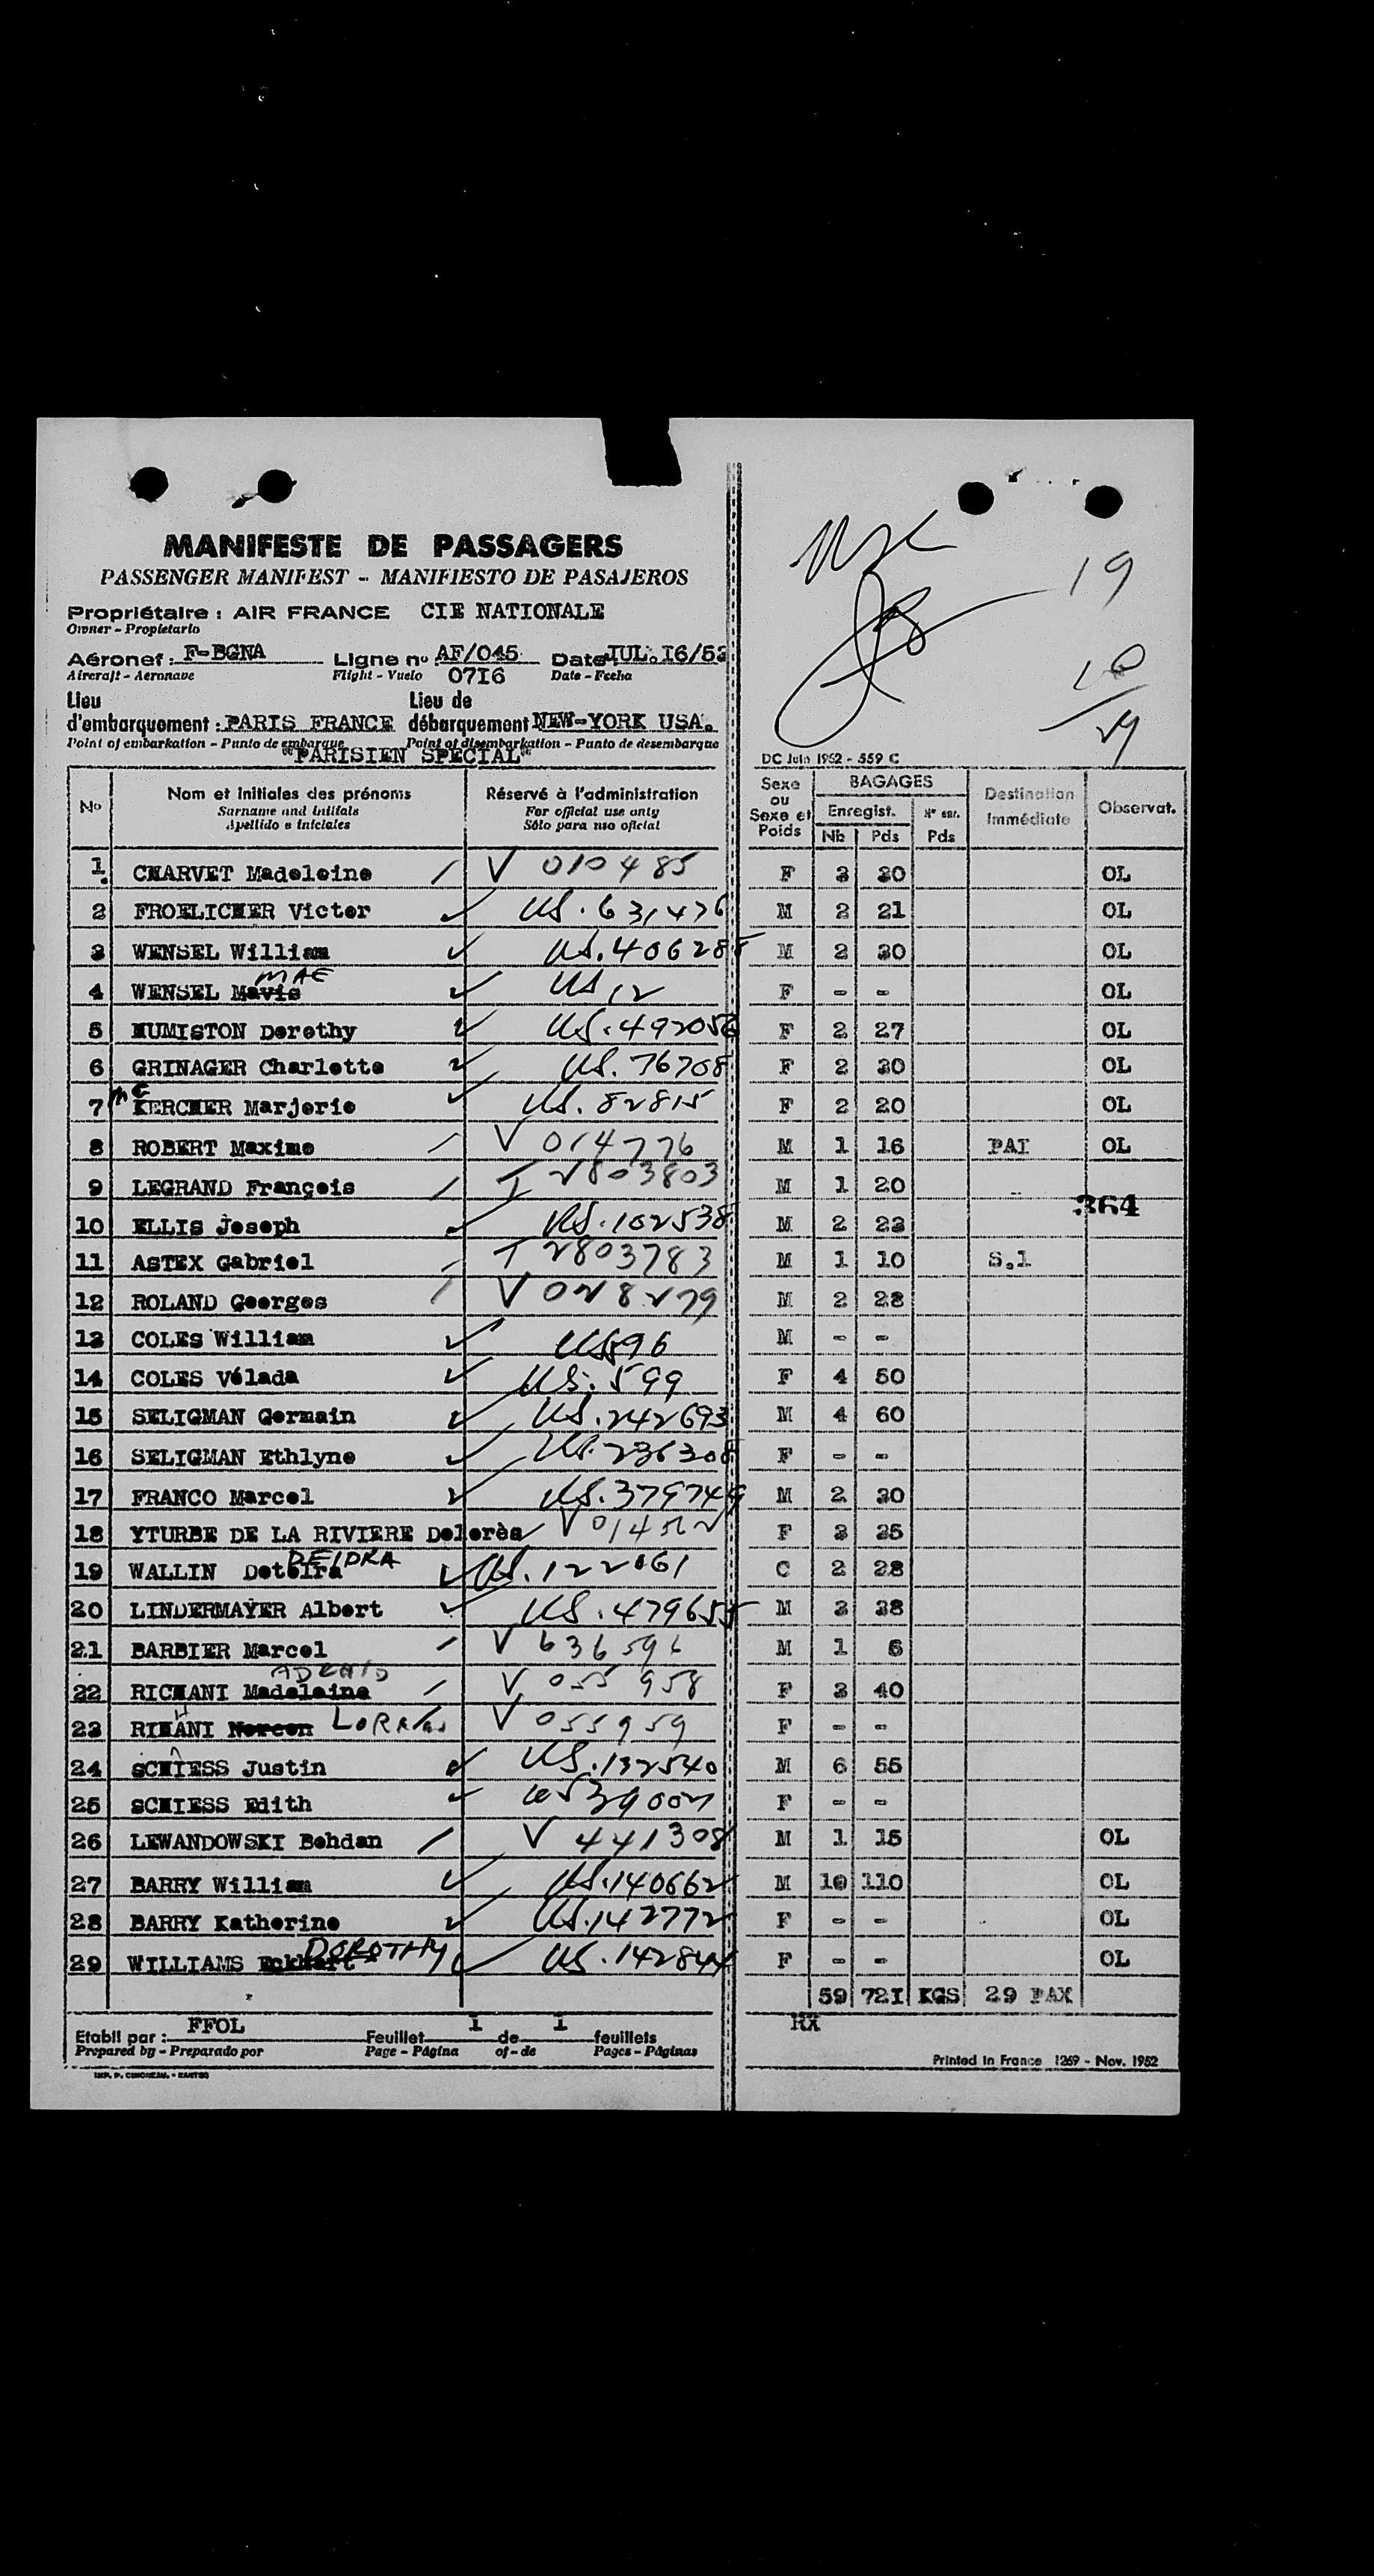 MANIFESTE DE PASSAGERS
PASSENGER MANIFEST - MANIFIESTO DE PASAJEROS
Propriétaire : AIR FRANCE CIE NATIONALE
Owner - Propietario
Aéronef : F-BGNA Ligne no AF/045 Date JUL. I6/53
Aircraft - Aeronave Flight - Vuelo 07I6 Date - Fecha
Lieu Lieu de
d'embarquement : PARIS FRANCE débarquement NEW-YORK USA.
Point of embarkation - Punto de embarque Point of disembarkation - Punto de desembarque
"PARISIEN SPECIAL"
19
10
DC Juin 1952 - 559 C
No Nom et initiales des prénoms Réservé à l'administration Sexe ou Sexe et Poids BAGAGES Destination Immédiate Observat.
Surname and initials For official use only Enregist. N° enr.
Apellido e iniciales Sólo para uso oficial Nb Pds Pds
1. CHARVET Madeleine / V 010485 F 3 30 OL
2 FROELICHER Victor ✓ US.631476 M 2 21 OL
3 WENSEL William ✓ US.406285 M 2 30 OL
4 WENSEL Mavis MAE ✓ US 12 F - - OL
5 HUMISTON Dorothy ✓ US.492056 F 2 27 OL
6 GRINAGER Charlotte ✓ US.76708 F 2 30 OL
7 Mc KERCHER Marjorie ✓ US.82815 F 2 20 OL
8 ROBERT Maxime / V 014776 M 1 16 PAI OL
9 LEGRAND François / T 2803803 M 1 20
364
10 ELLIS Joseph ✓ US.102538 M 2 23
11 ASTEX Gabriel / T 2803783 M 1 10 S.l
12 ROLAND Georges / V 028279 M 2 28
13 COLES William ✓ US 596 M - -
14 COLES Vélada ✓ US.599 F 4 50
15 SELIGMAN Germain ✓ US.242693 M 4 60
16 SELIGMAN Ethlyne ✓ US.236308 F - -
17 FRANCO Marcel ✓ US.379749 M 2 30
18 YTURBE DE LA RIVIERE Dolorès / V 014562 F 3 35
19 WALLIN DEIDRA ✓ US.122061 C 2 28
20 LINDERMAYER Albert ✓ US.479655 M 3 38
21 BARBIER Marcel / V 636596 M 1 6
22 RICHANI Madeleine / V 055958 F 3 40
23 RIHANI Noreen V 055959 F - -
24 SCHIESS Justin ✓ US.132540 M 6 55
25 SCHIESS Edith ✓ US 39002 F - -
26 LEWANDOWSKI Bohdan / V 441308 M 1 15 OL
27 BARRY William ✓ US.140662 M 10 110 OL
28 BARRY Katherine ✓ US.142772 F - - OL
29 WILLIAMS Eckhart DOROTHY ✓ US.142844 F - - OL
59 72I KGS 29 PAX
Etabli par : FFOL Feuillet 1 de 1 feuillets RX
Prepared by - Preparado por Page - Página of - de Pages - Páginas
Printed in France 1269 - Nov. 1952